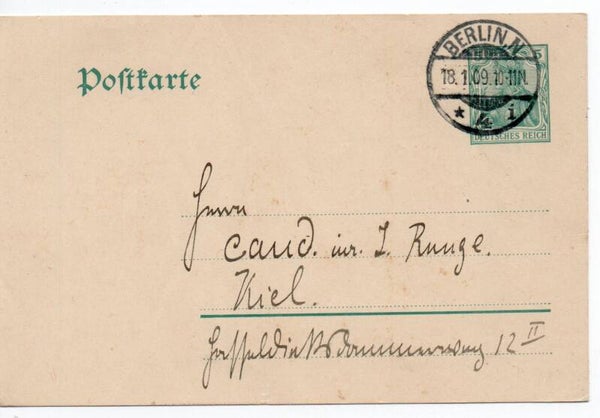 BERLIN. N.
5
18. 1. 09. 10-11 N.
* 4 i
DEUTSCHES REICH
Postkarte
Herrn
cand. iur. J. Runge.
Kiel.
12 II